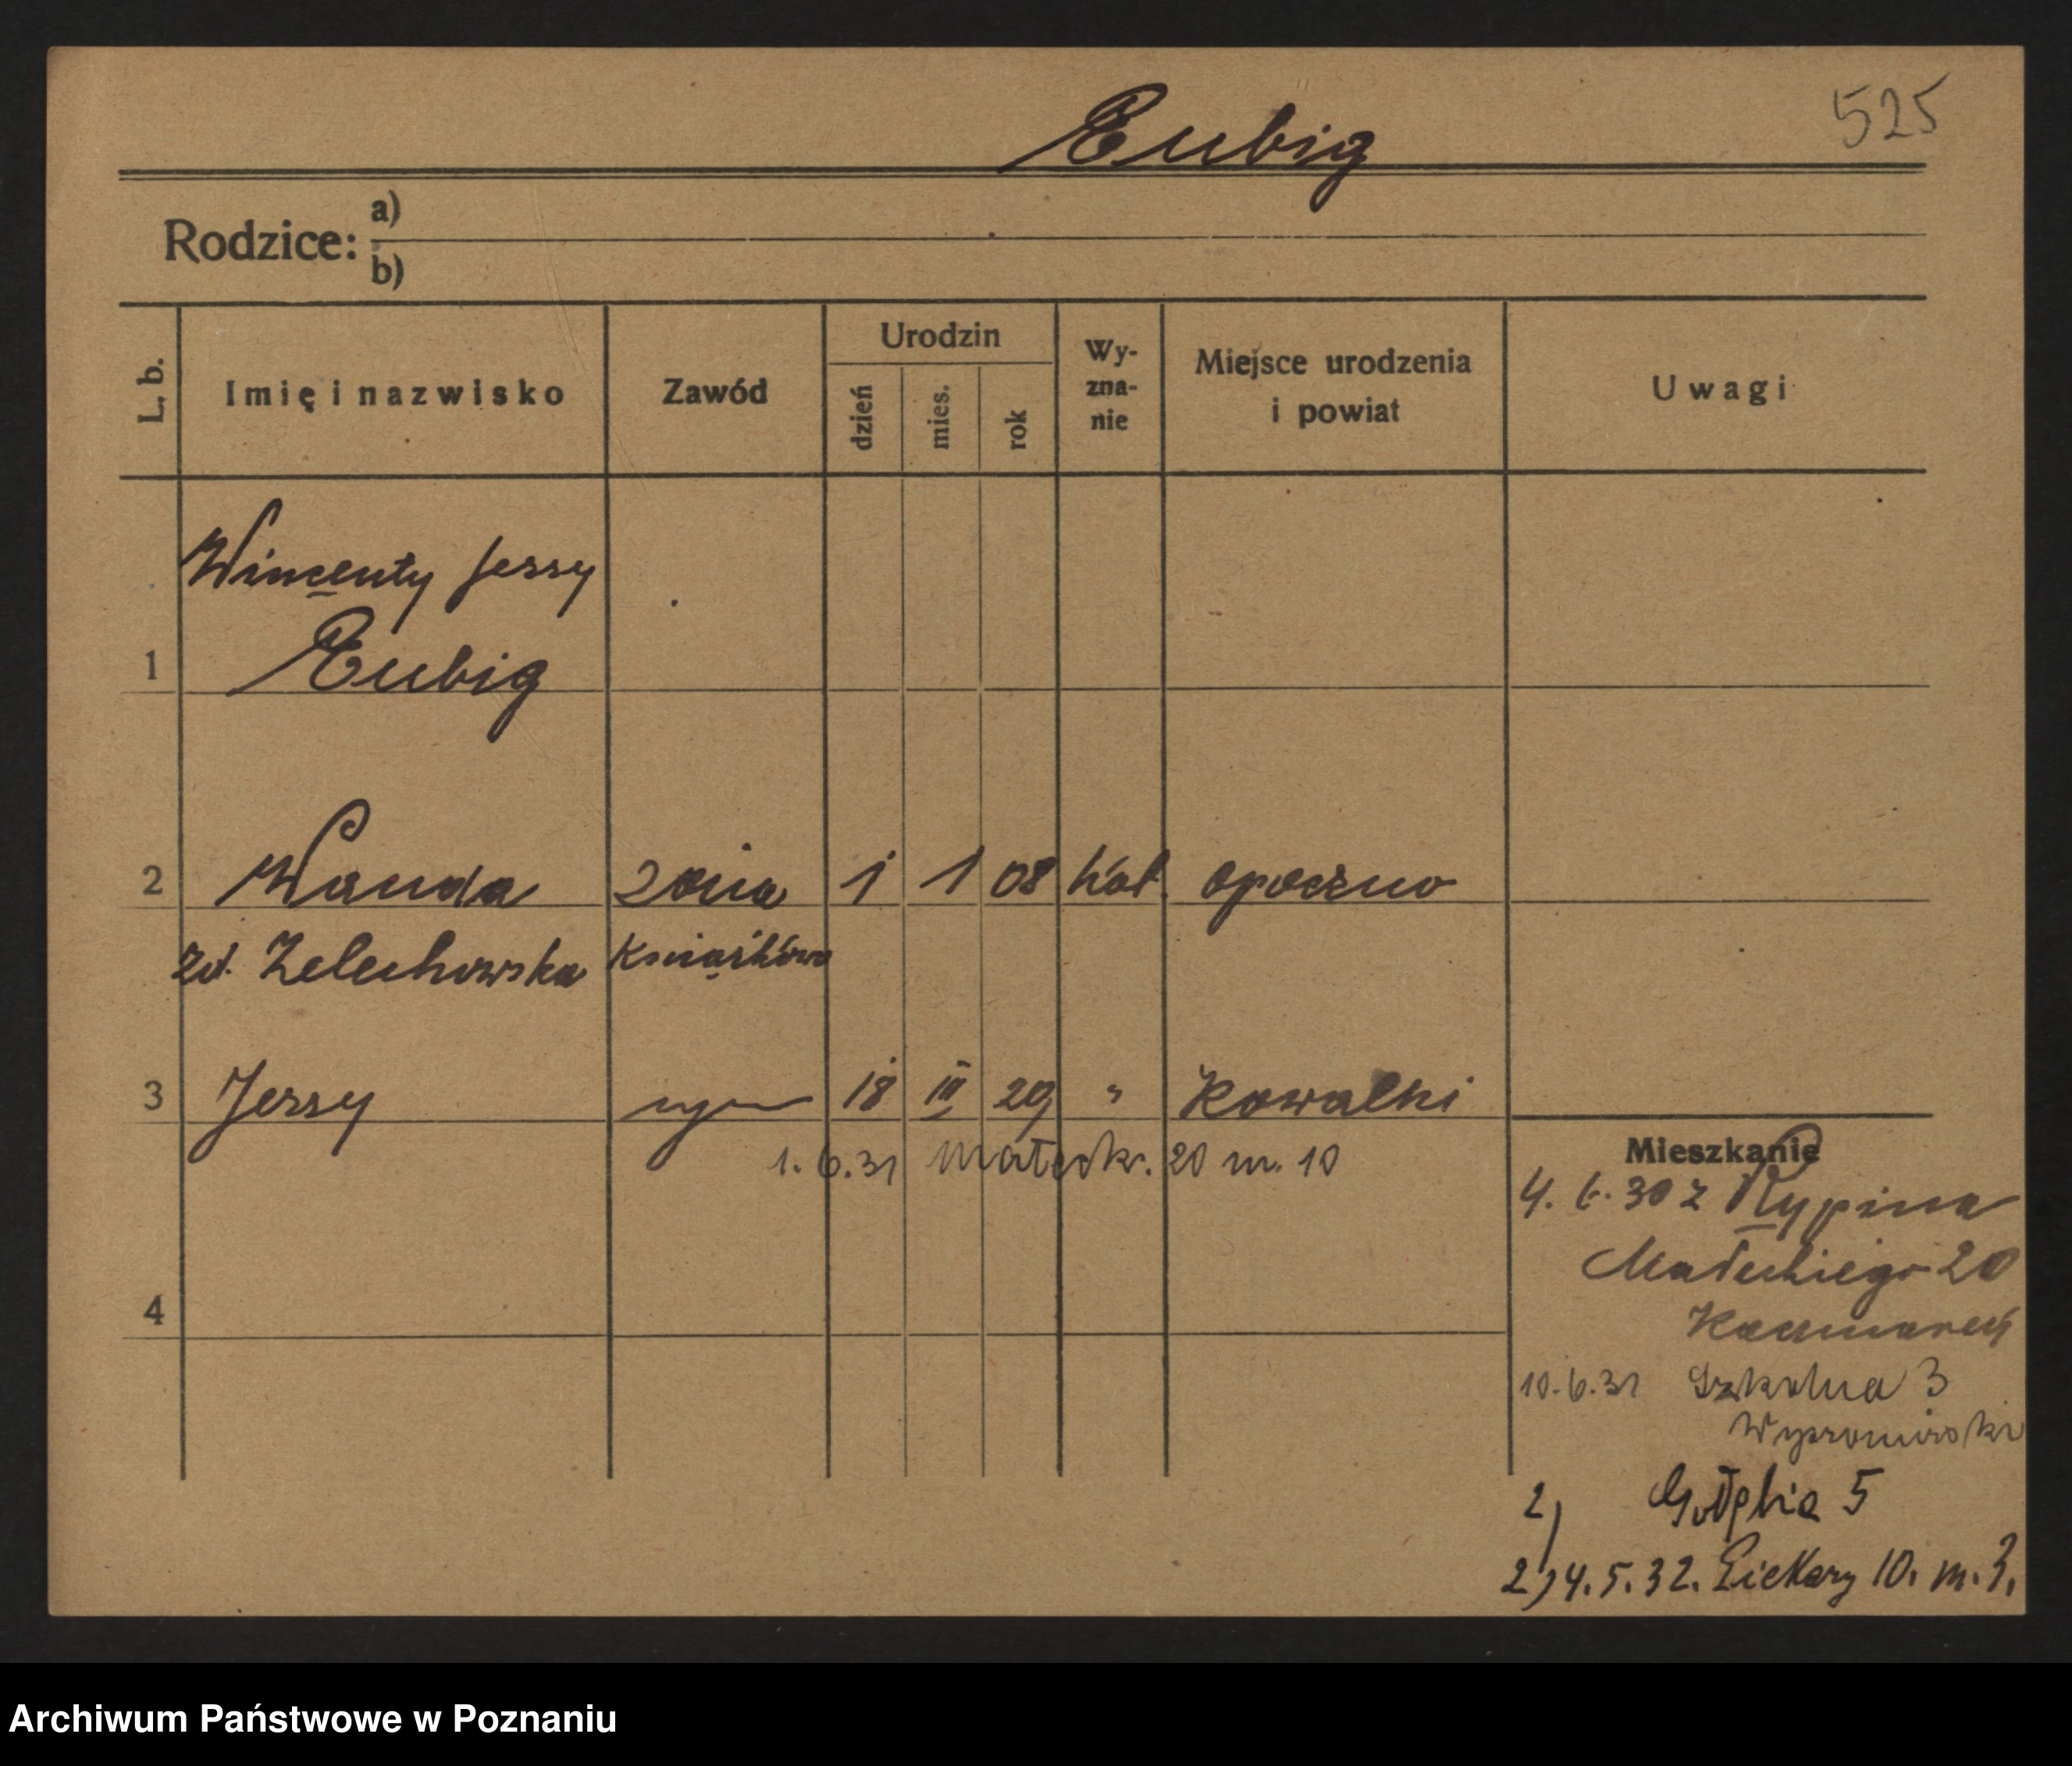 525
Eubig
Rodzice: a)
b)
L. b. Imię i nazwisko Zawód Urodzin dzień mies. rok Wy-zna-nie Miejsce urodzenia i powiat Uwagi
Wincenty Jerzy
1 Eubig
2 Wanda żona 1 1 08 kat. Opoczno
zd. Zelechowska
3 Jerzy syn 18 III 29 " Kowalki
1.6.31 Małeck. 20 m. 10
Mieszkanie
4. 6. 30 z Rypina
Małeckiego 20
Kaczmarek
4
10.6.31 Szkolna 3
2) Gołębia 5
2) 4.5.32. Piekary 10. m. 3.
Archiwum Państwowe w Poznaniu